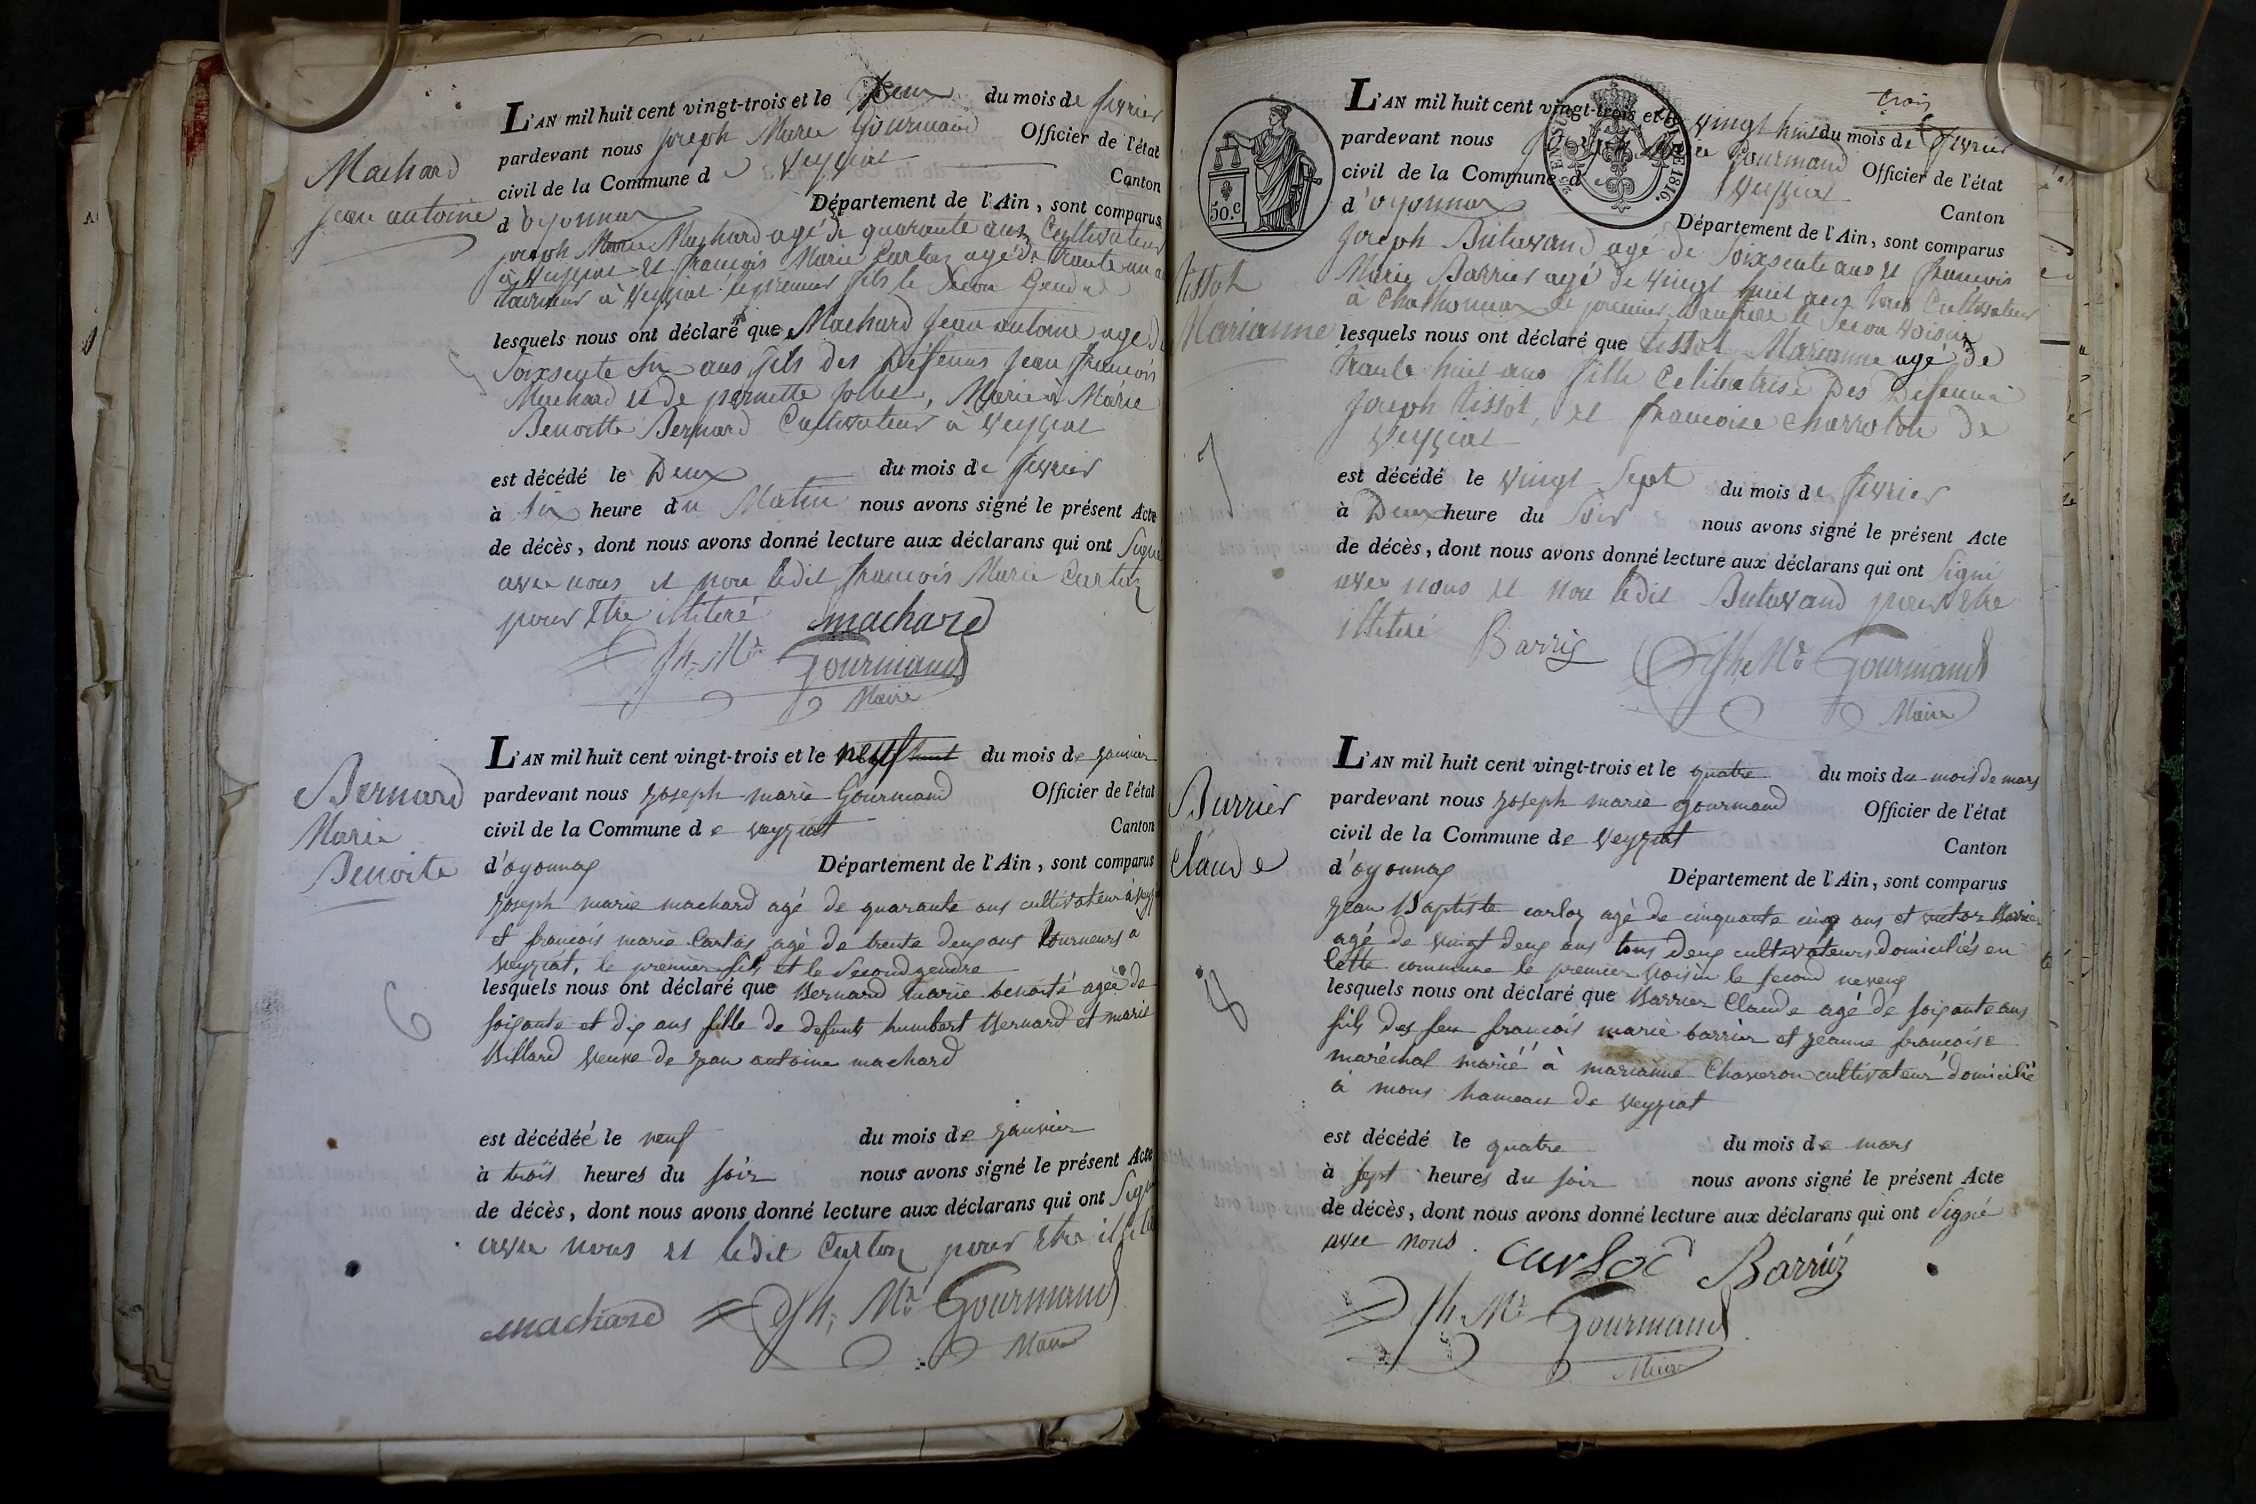 Machard
jean antoine
L'AN mil huit cent vingt-trois et le Deux du mois de fevrier
pardevant nous Joseph Marie Gourmand Officier de l'état
civil de la Commune d Veyziat Canton
d'oyonnax Département de l'Ain, sont comparus
joseph Marie Machard agé de quarante ans Cultivateur
à Veyziat et françois Marie Carloz agé de trente un
tourneur à Veyziat le premier fils le Secon Gendre
lesquels nous ont déclaré que Machard jean antoine agé de
Soixsente Six ans fils des Deffenus jean françois
Machard et de pernette Jollet, Marié à Marie
Benoitte Bernard Cultivateur à Veyziat
est décédé le Deux du mois de fevrier
à Six heure du Matin nous avons signé le présent Acte
de décès, dont nous avons donné lecture aux déclarans qui ont Signé
avec nous et non ledit françois Marie Carloz
pour Etre illiteré machard
Jh. Mie Gourmand
Maire
Bernard
Marie
Benoite
6
L'AN mil huit cent vingt-trois et le neuf huit du mois de janvier
pardevant nous joseph marie Gourmand Officier de l'état
civil de la Commune de veyziat Canton
d'oyonnax Département de l'Ain, sont comparus
joseph marie machard agé de quarante ans cultivateur à
et francois marie Carloz agé de trente deux ans tourneurs a
veyziat, le premier fils et le Second gendre
lesquels nous ont déclaré que Bernard marie benoité agée de
soixante et dix ans fille de defunts humbert Bernard et marie
Billard veuve de jean antoine machard
est décédéé le neuf du mois de janvier
à trois heures du soir nous avons signé le présent Acte
de décès, dont nous avons donné lecture aux déclarans qui ont Signé
avec nous et ledit Carloz pour Etre
machard Jh. Mie Gourmand
Maire
50.c
DE 1816.
Tissot
Marianne
7
trois
L'AN mil huit cent vingt-trois et le vingt huit du mois de fevrier
pardevant nous Joseph Marie Gourmand Officier de l'état
civil de la Commune d Veyziat Canton
d'oyonnax Département de l'Ain, sont comparus
Joseph Butavand agé de Soixsente ans et francois
Marie Barrier agé de vingt huit ans tous Cultivateur
à Chathonnax le premier Beaufrere le Secon voisin
lesquels nous ont déclaré que tissot Marianne agé de
trante huit ans fille Celibatrise Des Defenus
Joseph tissot, et francoise Charroton de
Veyziat
est décédé le vingt Sept du mois de fevrier
à Deux heure du Soir nous avons signé le présent Acte
de décès, dont nous avons donné lecture aux déclarans qui ont Signé
avec nous et non ledit Butavand pour Etre
illiteré Barrier Jh. Mie Gourmand
Maire
Barrier
Claude
8
L'AN mil huit cent vingt-trois et le quatre du mois du mois de mars
pardevant nous joseph marie gourmand Officier de l'état
civil de la Commune de veyziat Canton
d'oyonnax Département de l'Ain, sont comparus
jean Baptiste carloz agé de cinquante cinq ans et victor Barrier
agé de vingt deux ans tous deux cultivateurs domiciliés en
Cette commune le premier voisin le second neveux
lesquels nous ont déclaré que Barrier Claude agé de soixante ans
fils des feu francois marie barrier et jeanne francoise
maréchal marié à marianne Chaveron cultivateur domicilié
à mons hameau de veyziat
est décédé le quatre du mois de mars
à sept heures du soir nous avons signé le présent Acte
de décès, dont nous avons donné lecture aux déclarans qui ont Signé
avec nous. Carloz Barrier
Jh. Mie Gourmand
Maire